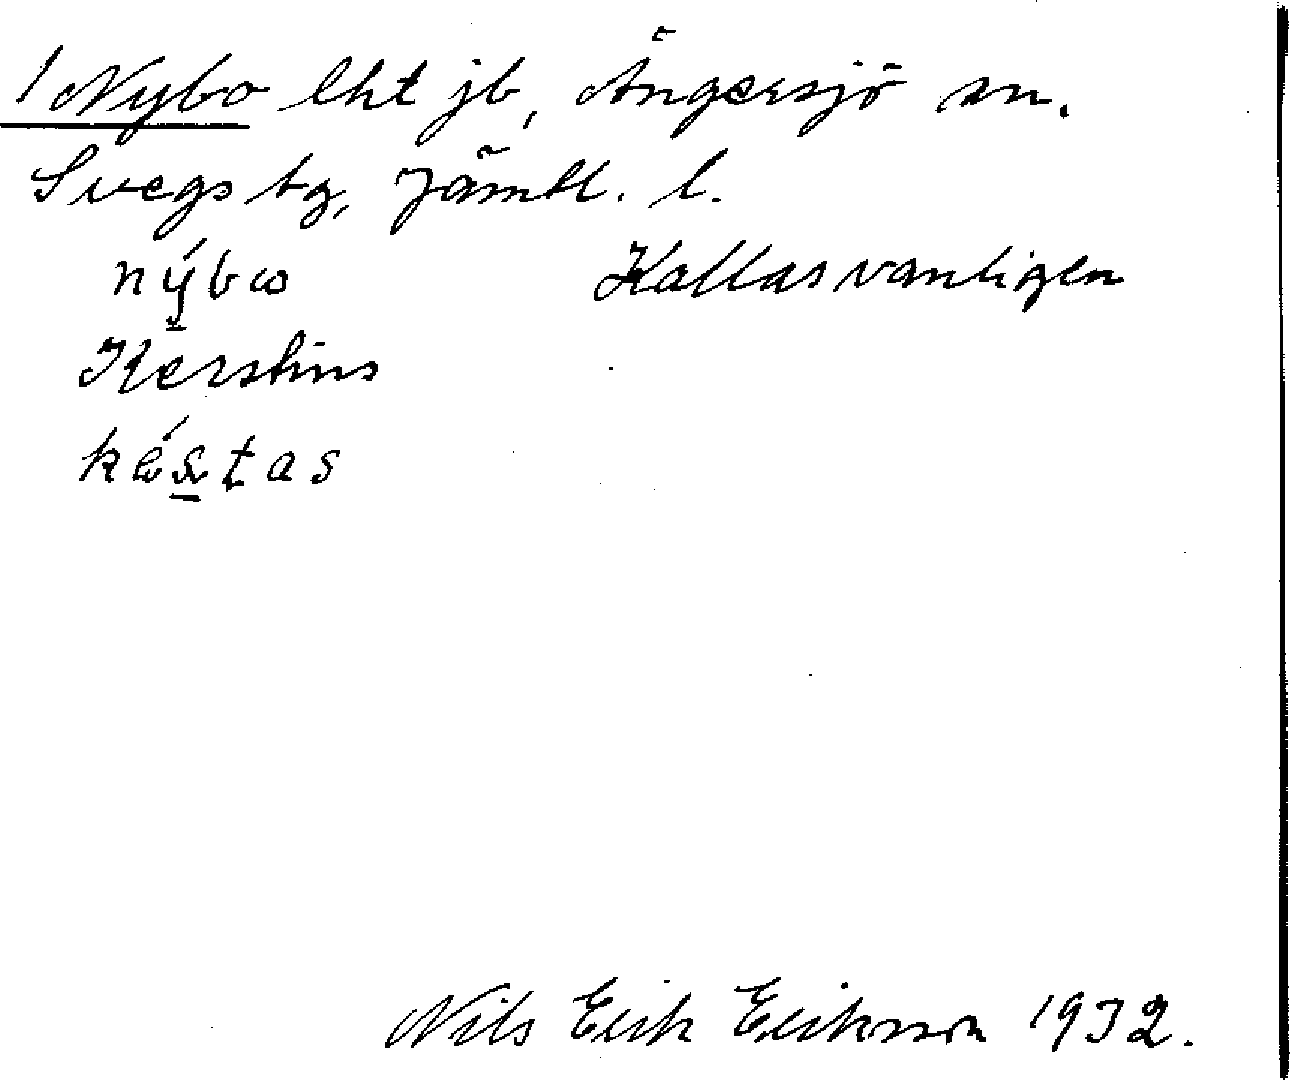 1 Nybo lht jb, Ängersjö sn.
Svegs tg, Jämtl. l.
nýbω Kallas vanligen
Kerstins
késtas
Nils Erik Erikson 1932.